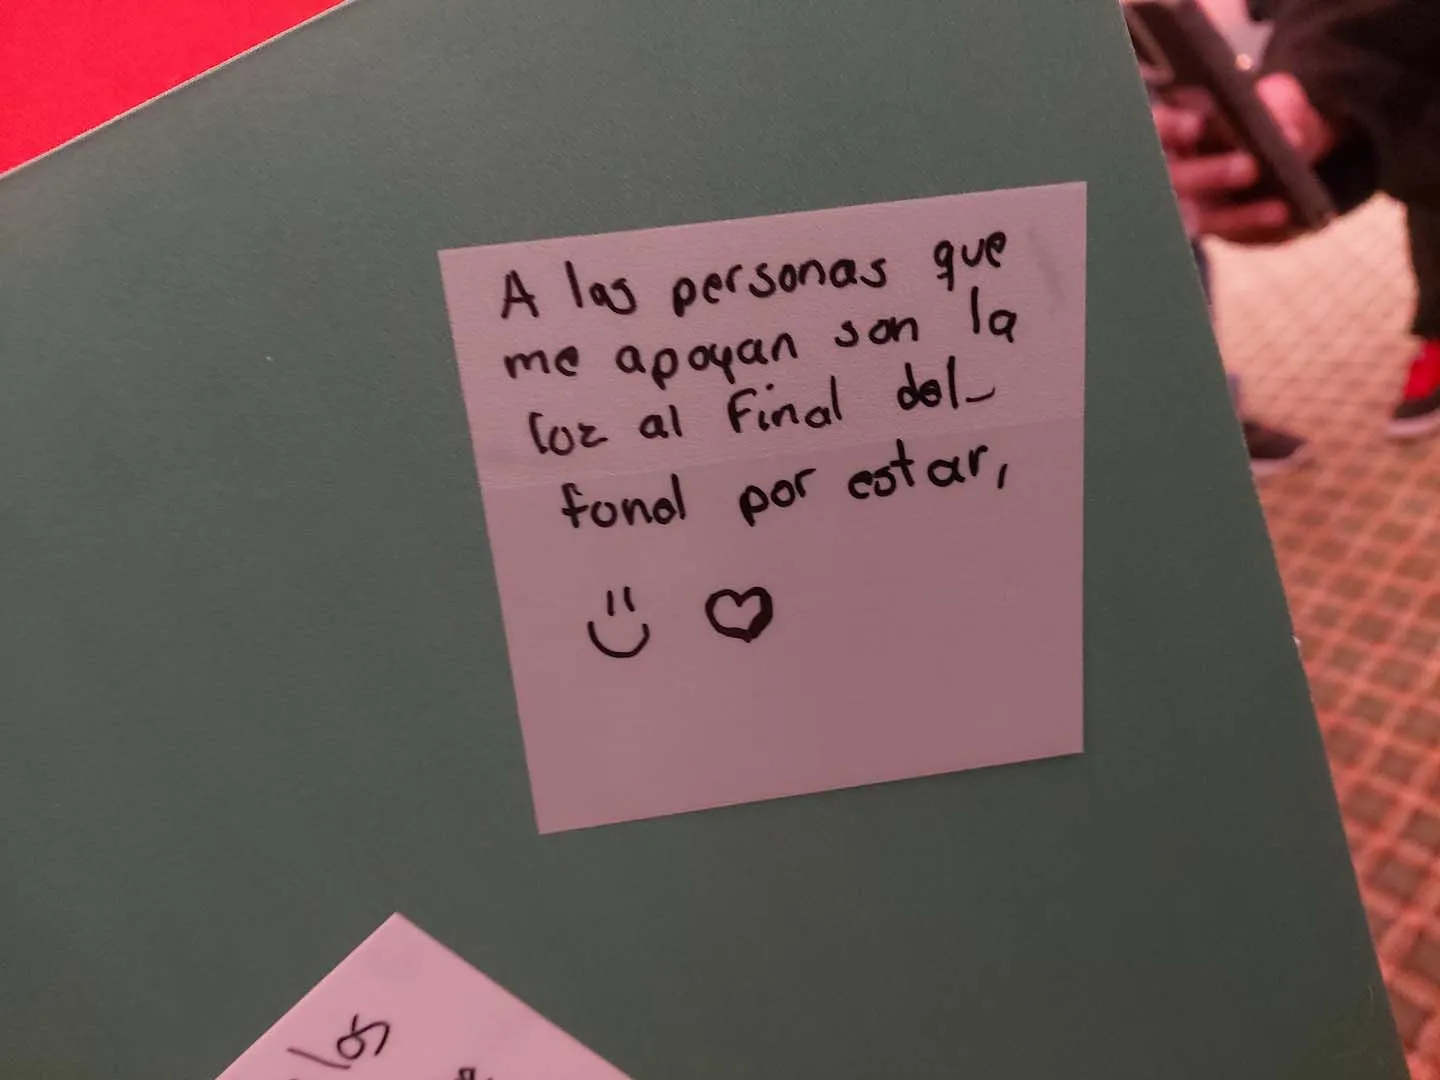 A las personas que
me apoyan son la
loz al Final del-
fondl por estar,
las